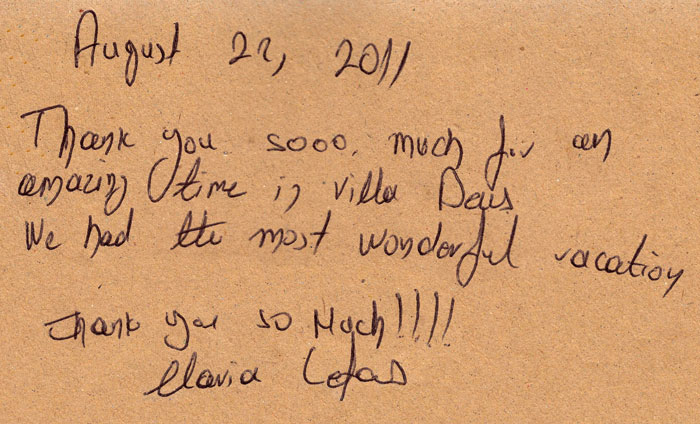 August 22, 2011
Thank you sooo. much for an
amazing time in villa
We had the most wonderful vacation
Thank you so Much!!!!